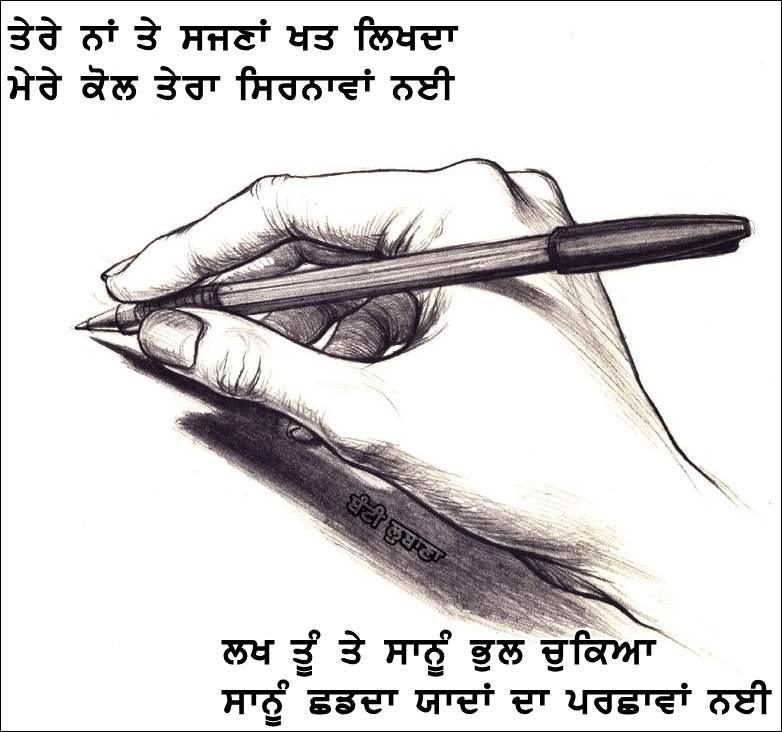 ਤੇਰੇ ਨਾਂ ਤੇ ਸਜਣਾਂ ਖਤ ਲਿਖਦਾ
ਮੇਰੇ ਕੋਲ ਤੇਰਾ ਸਿਰਨਾਵਾਂ ਨਈ
ਬੰਟੀ ਲੁਬਾਣਾ
ਲਖ ਤੂੰ ਤੇ ਸਾਨੂੰ ਭੁਲ ਚੁਕਿਆ
ਸਾਨੂੰ ਛਡਦਾ ਯਾਦਾਂ ਦਾ ਪਰਛਾਵਾਂ ਨਈ